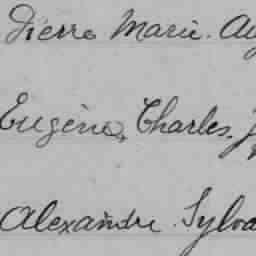 Pierre Marie. Au
Eugène, Charles, J
Alexandre Sylva